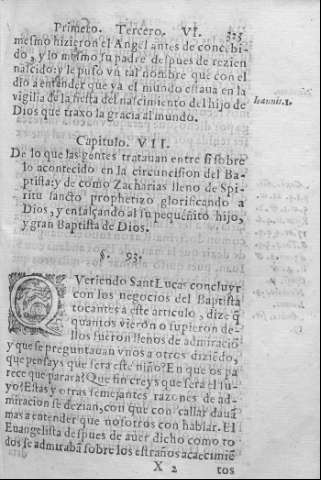 Primero. Tercero. VI. 323
mesmo hizieron el Angel antes de concebi-
do, y lo mismo su padre despues de rezien
nascido: y le puso vn tal nombre que con el
dio a entender que ya el mundo estaua en la
vigilia de la fiesta del nascimiento del hijo de
Dios que traxo la gracia al mundo.
Ioannis.1.
Capitulo. VII.
De lo que las gentes tratauan entre si sobre
lo acontecido en la circuncision del Ba-
ptista: y de como Zacharias lleno de Spi-
ritu sancto prophetizo glorificando a
Dios, y ensalçando al su pequeñito hijo,
y gran Baptista de Dios.
§. 93.
QVeriendo Sant Lucas concluyr
con los negocios del Baptista
tocantes a este articulo, dize q̃
quantos vieron o supieron de-
llos fueron llenos de admiraciõ
y que se preguntauan vnos a otros diziẽdo,
que pensays que sera este niño? En que os pa
rece que parara? Que fin creys que sera el su-
yo? Estas y otras semejantes razones de ad-
miracion se dezian, con que con callar dauã
mas a entender que nosotros con hablar. El
Euangelista despues de auer dicho como to
dos se admirabã sobre los estraños acaecimiẽ
X 2 tos